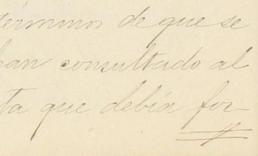 términos de que se
han consultado al
ta que debía for